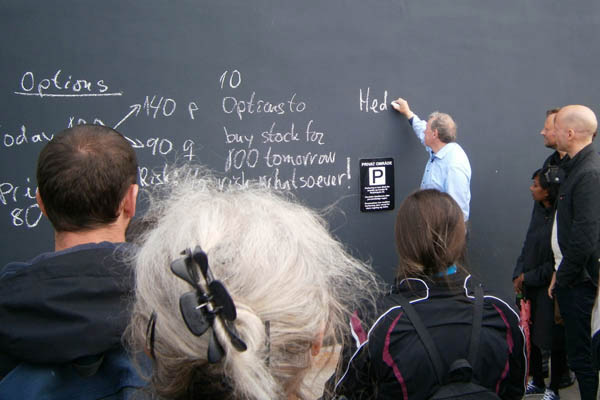 Options
Today 100
140 p
90 q
Pri
80
10
Options to
buy stock for
100 tomorrow
Risk
risk whatsoever!
Hed
PRIVAT OMRÅDE
P